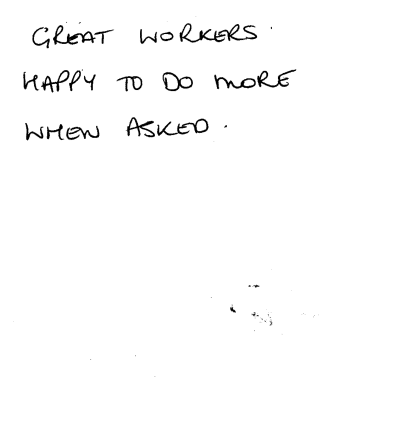 GREAT WORKERS.
HAPPY TO DO MORE
WHEN ASKED.